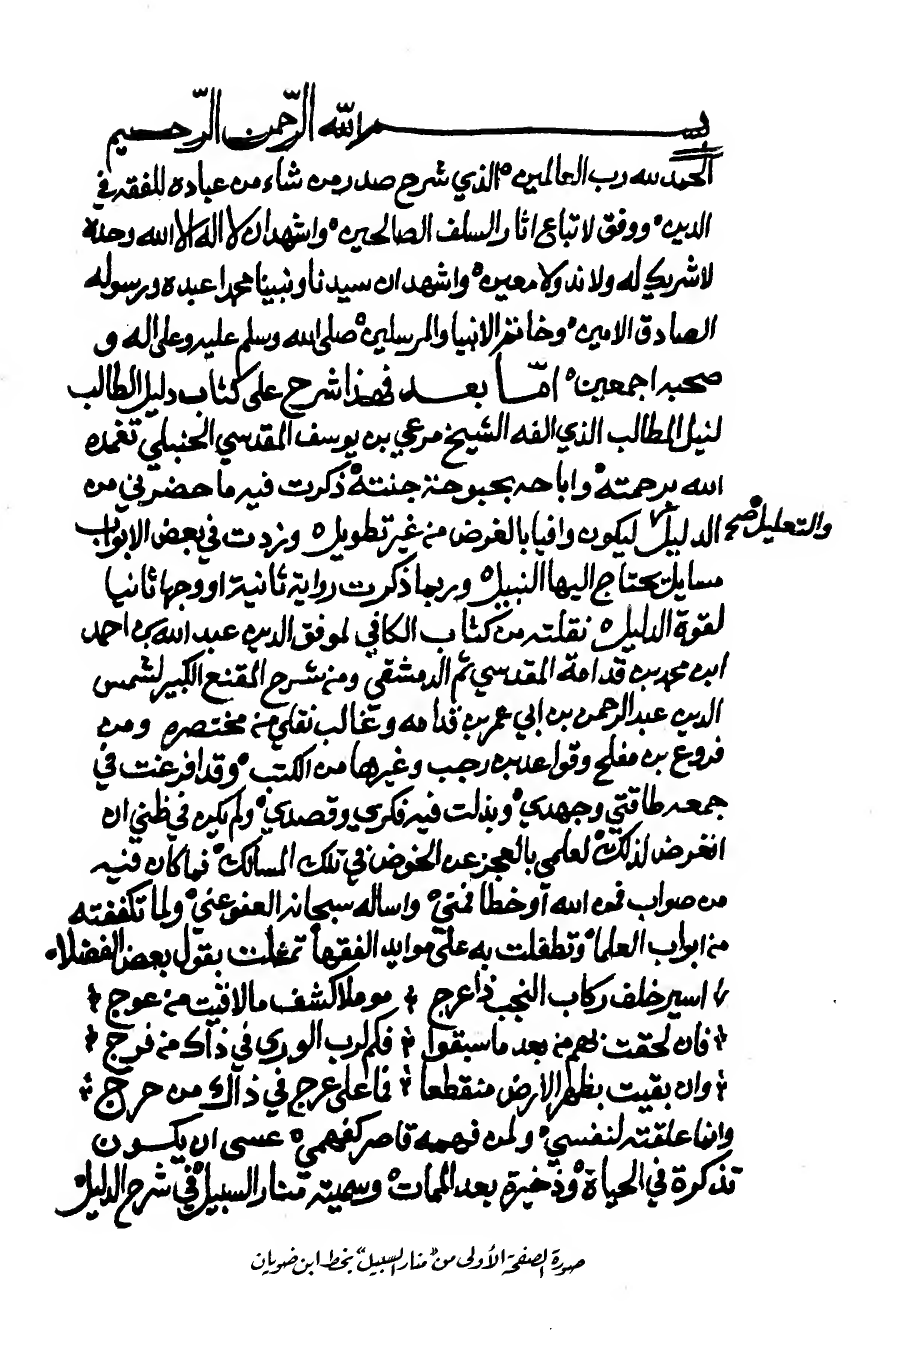 بسم الله الرحمن الرحيم
الحمد لله رب العالمين الذي شرح صدر من شاء من عباده للفقه في
الدين ووفق لاتباع اثار السلف الصالحين واشهد ان لا اله الا الله وحده
لا شريك له ولا ند ولا معين واشهد ان سيدنا ونبينا محمدا عبده ورسوله
الصادق الامين وخاتم الانبيا والمرسلين صلى الله وسلم عليه وعلى اله و
صحبه اجمعين امّا بعد فهذا شرح على كتاب دليل الطالب
لنيل المطالب الذي الفه الشيخ مرعي بن يوسف المقدسي الحنبلي تغمده
الله برحمته واباحه بحبوحة جنته ذكرت فيه ما حضرني من
الدليل ليكون وافيا بالغرض من غير تطويل وزدت في بعض الابواب
والتعليل صح
مسايل يحتاج اليها النبيل وربما ذكرت رواية ثانية او وجها ثانيا
لقوة الدليل نقلته من كتاب الكافي لموفق الدين عبد الله بن احمد
ابن محمد بن قدامة المقدسي ثم الدمشقي ومن شرح المقنع الكبير لشمس
الدين عبد الرحمن بن ابي عمر بن قدامه وغالب نقلي من مختصره ومن
فروع بن مفلح وقواعد بن رجب وغيرها من الكتب وقد افرغت في
جمعه طاقتي وجهدي وبذلت فيه فكري وقصدي ولم يكن في ظني ان
اتعرض لذلك لعلمي بالعجز عن الخوض في تلك المسالك فما كان فيه
من صواب فمن الله أو خطا فمني واساله سبحانه العفو عني ولما تكففته
من ابواب العلما وتطفلت به على موايد الفقها تمثلت بقول بعض الفضلاء
اسير خلف ركاب النجب ذا عرج موملا كشف ما لاقيت من عوج
فان لحقت بهم من بعد ما سبقوا فكم لرب الورى في ذاك من فرج
وان بقيت بظهر الارض منقطعا فما على عرج في ذاك من حرج
وانما علقته لنفسي ولمن فهمه قاصر كفهمي عسى ان يكون
تذكرة في الحياة وذخيرة بعد الممات وسميته منار السبيل في شرح الدليل
صورة الصفحة الأولى من "منار السبيل" بخط ابن ضويان